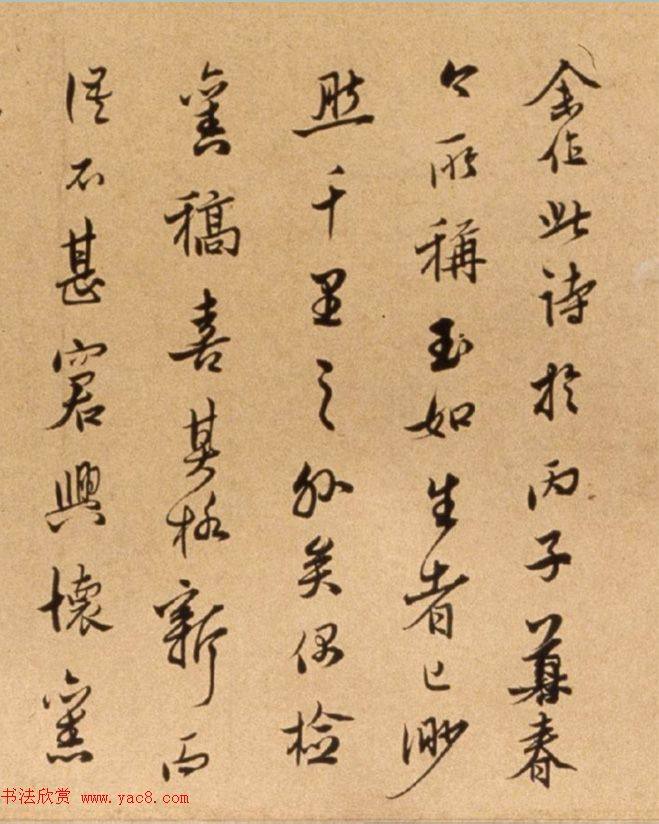 余作此詩於丙子暮春
今所稱玉如生者已渺
然千里之外矣偶檢
舊稿喜其格新而
語不甚窘興懷舊
书法欣赏 www.yac8.com